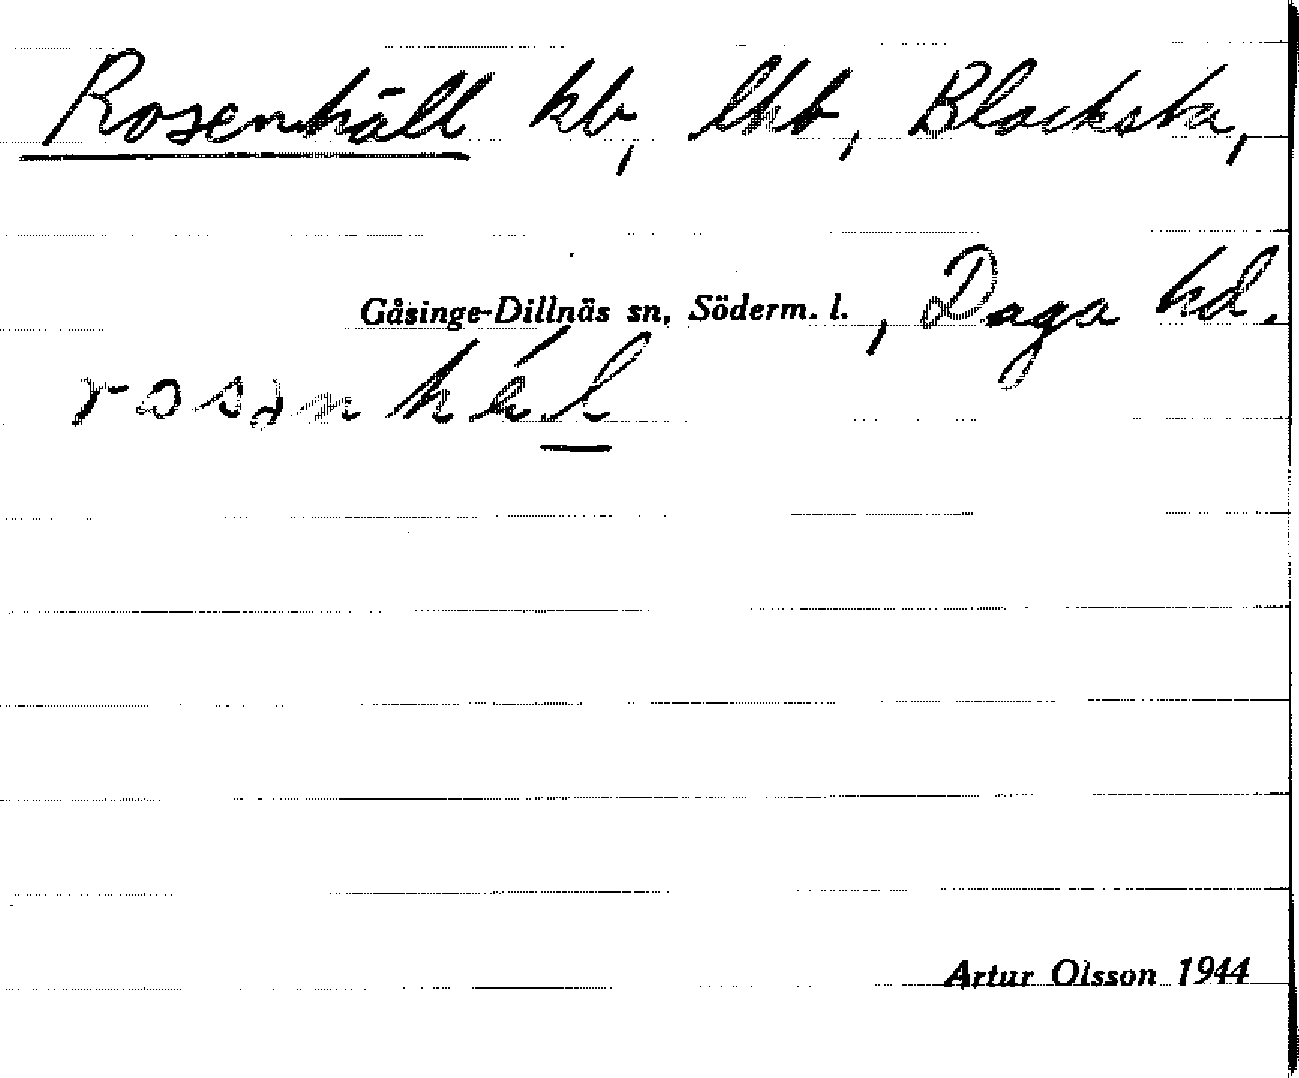 Rosenhäll kb, lht, Blacksta,
Gåsinge-Dillnäs sn, Söderm. l., Daga hd.
rosənhä́l
Artur Olsson 1944